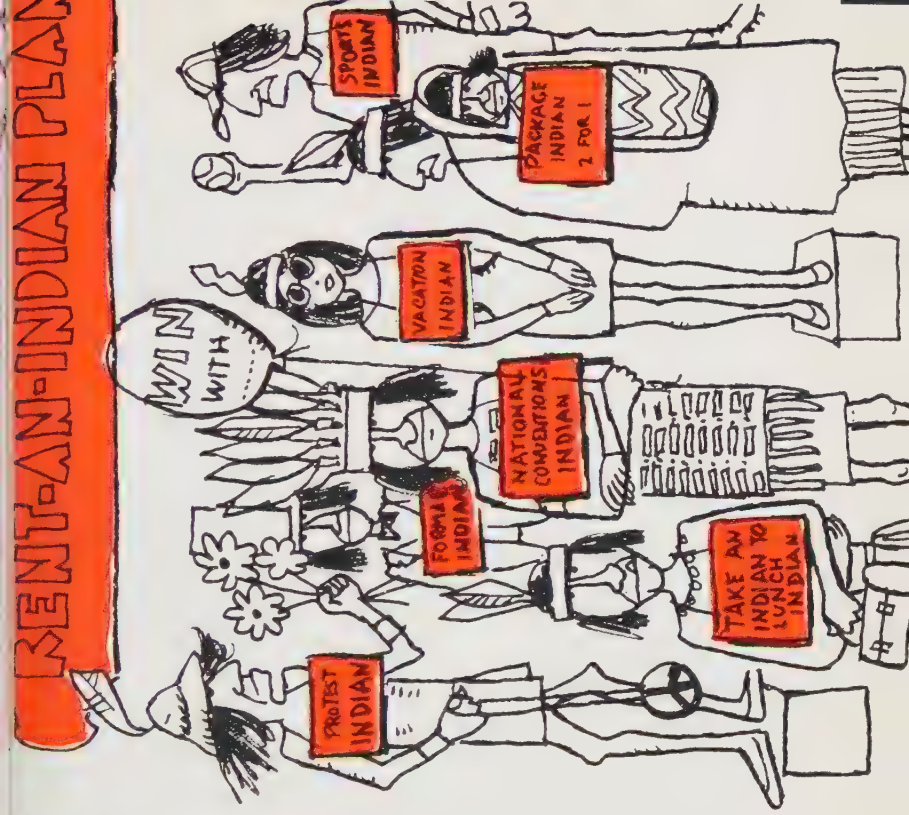 RENT-AN-INDIAN PLAN
WIN
WITH
PROTEST
INDIAN
FORMAL
INDIAN
TAKE AN
INDIAN TO
LUNCH
INDIAN
NATIONAL
CONVENTIONS
INDIAN
VACATION
INDIAN
SPORTS
INDIAN
3
PACKAGE
INDIAN
2 FOR 1